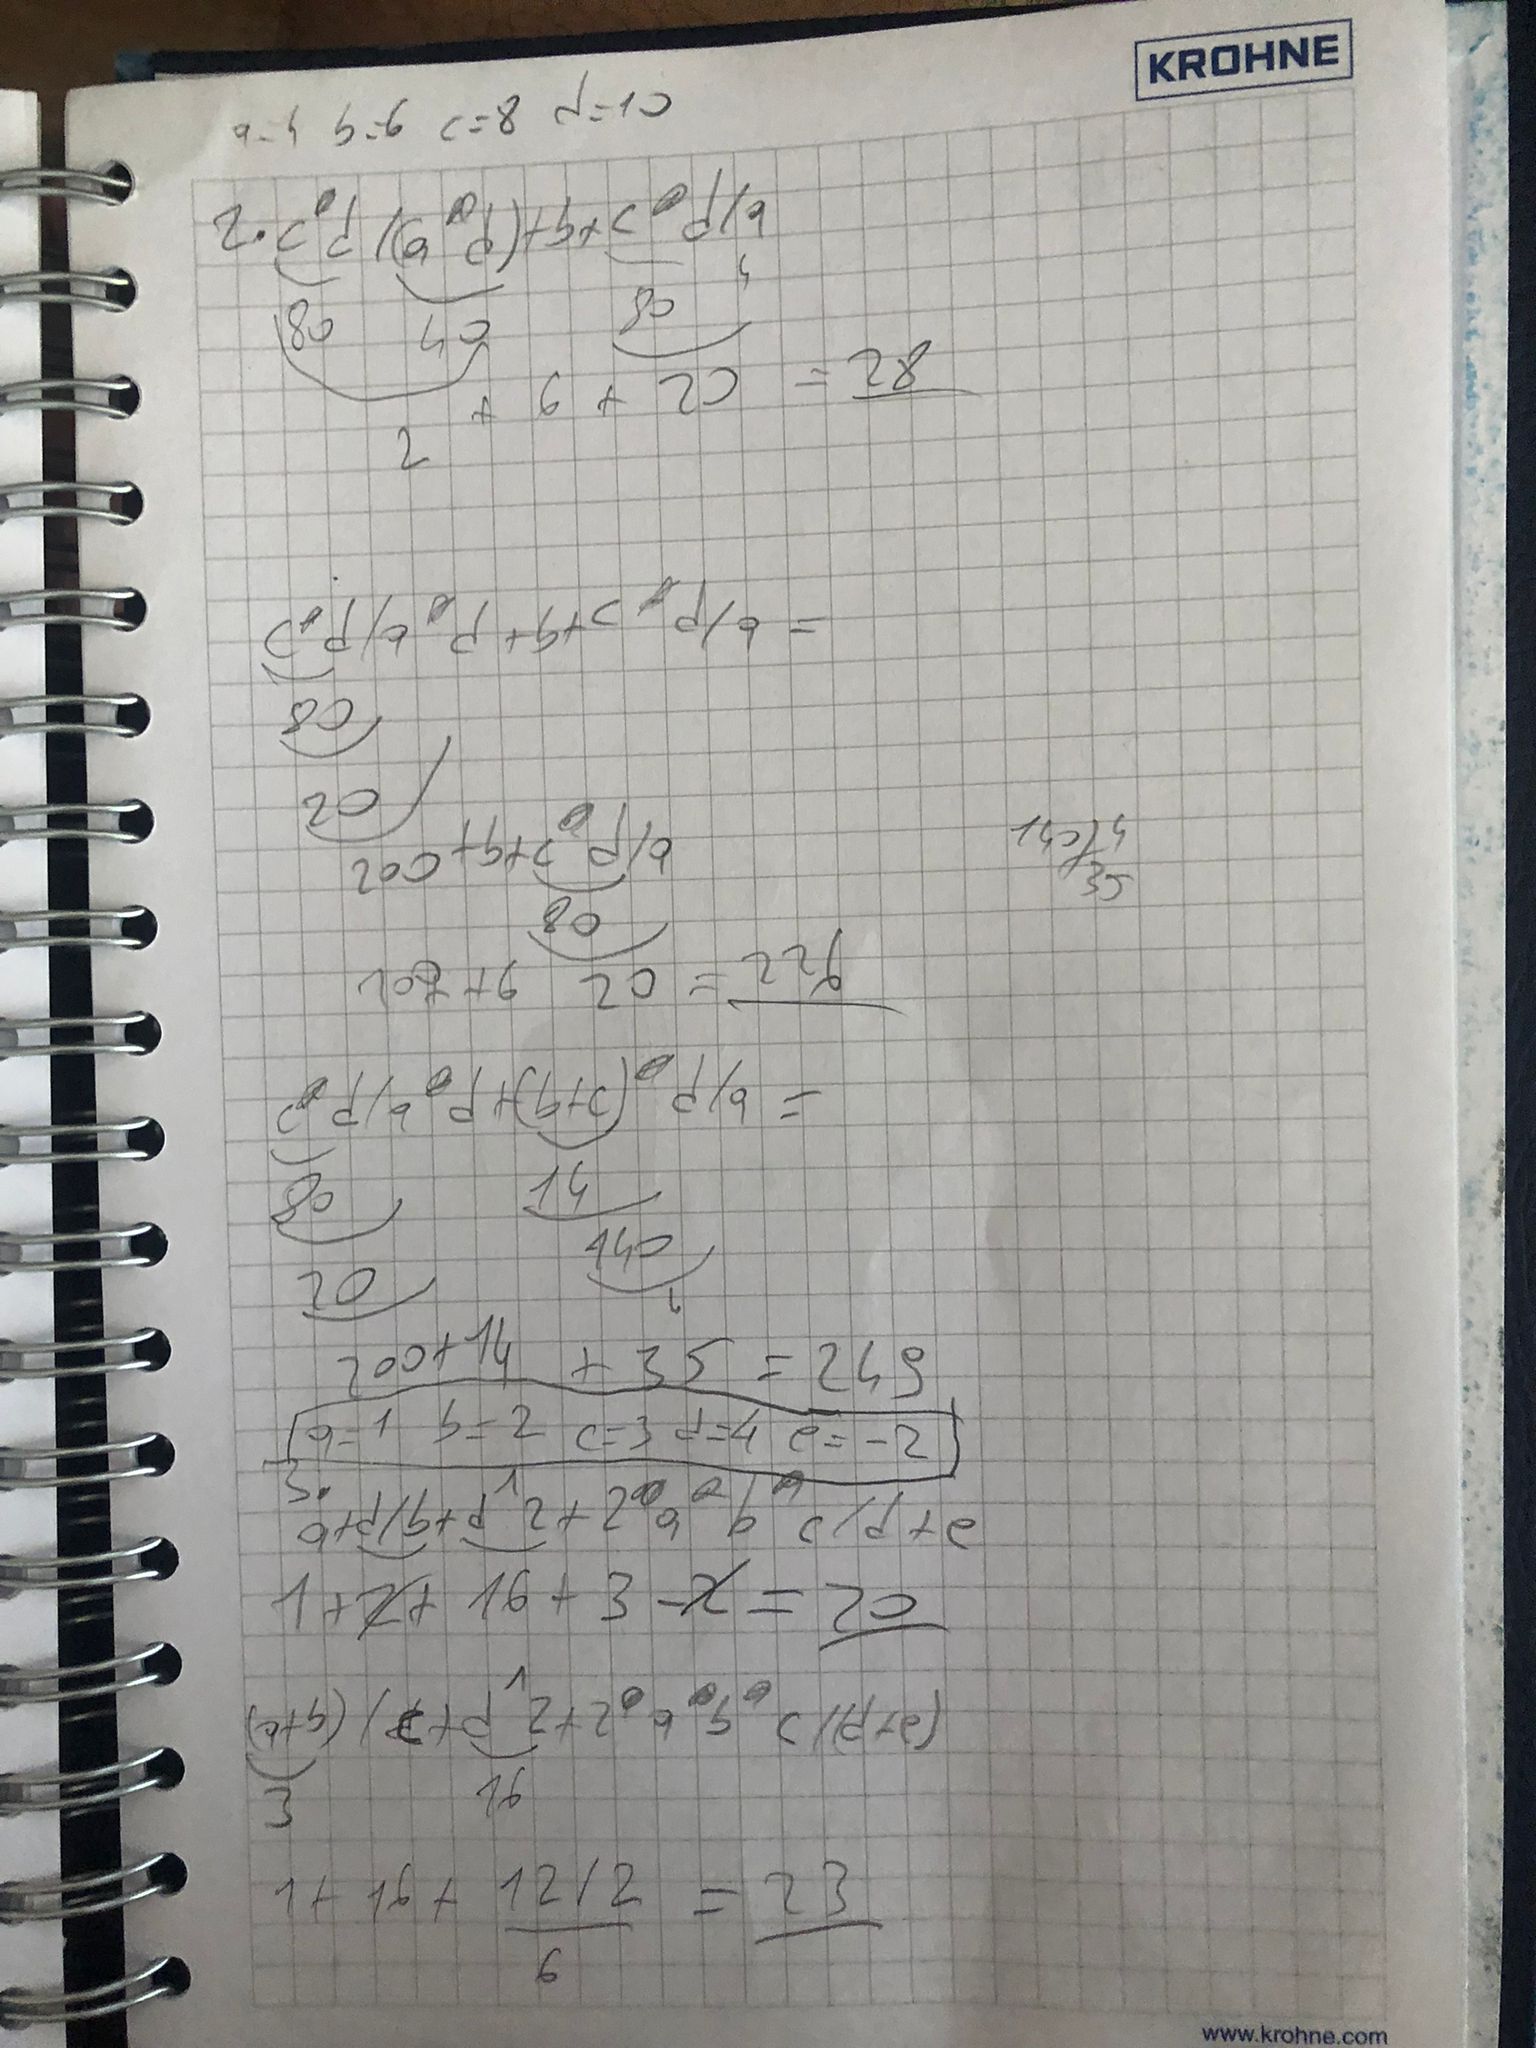 KROHNE
a=4 b=6 c=8 d=10
2. c*d/(a*d)+b+c*d/a
80 40 80 4
2 + 6 + 20 = 28
c*d/a*d+b+c*d/a =
80
20
200+b+c*d/a
140/4
35
80
200+6 20 = 226
c*d/a*d+(b+c)*d/a =
80 14
140
20 4
200+14 + 35 = 249
a=1 b=2 c=3 d=4 e=-2
3.
a+d/b+d^2+2*a*b*c/d+e
1+2+16+3-2=20
2+2*a*b*c/(d+e)
3 16
1+16+12/2 = 23
6
www.krohne.com